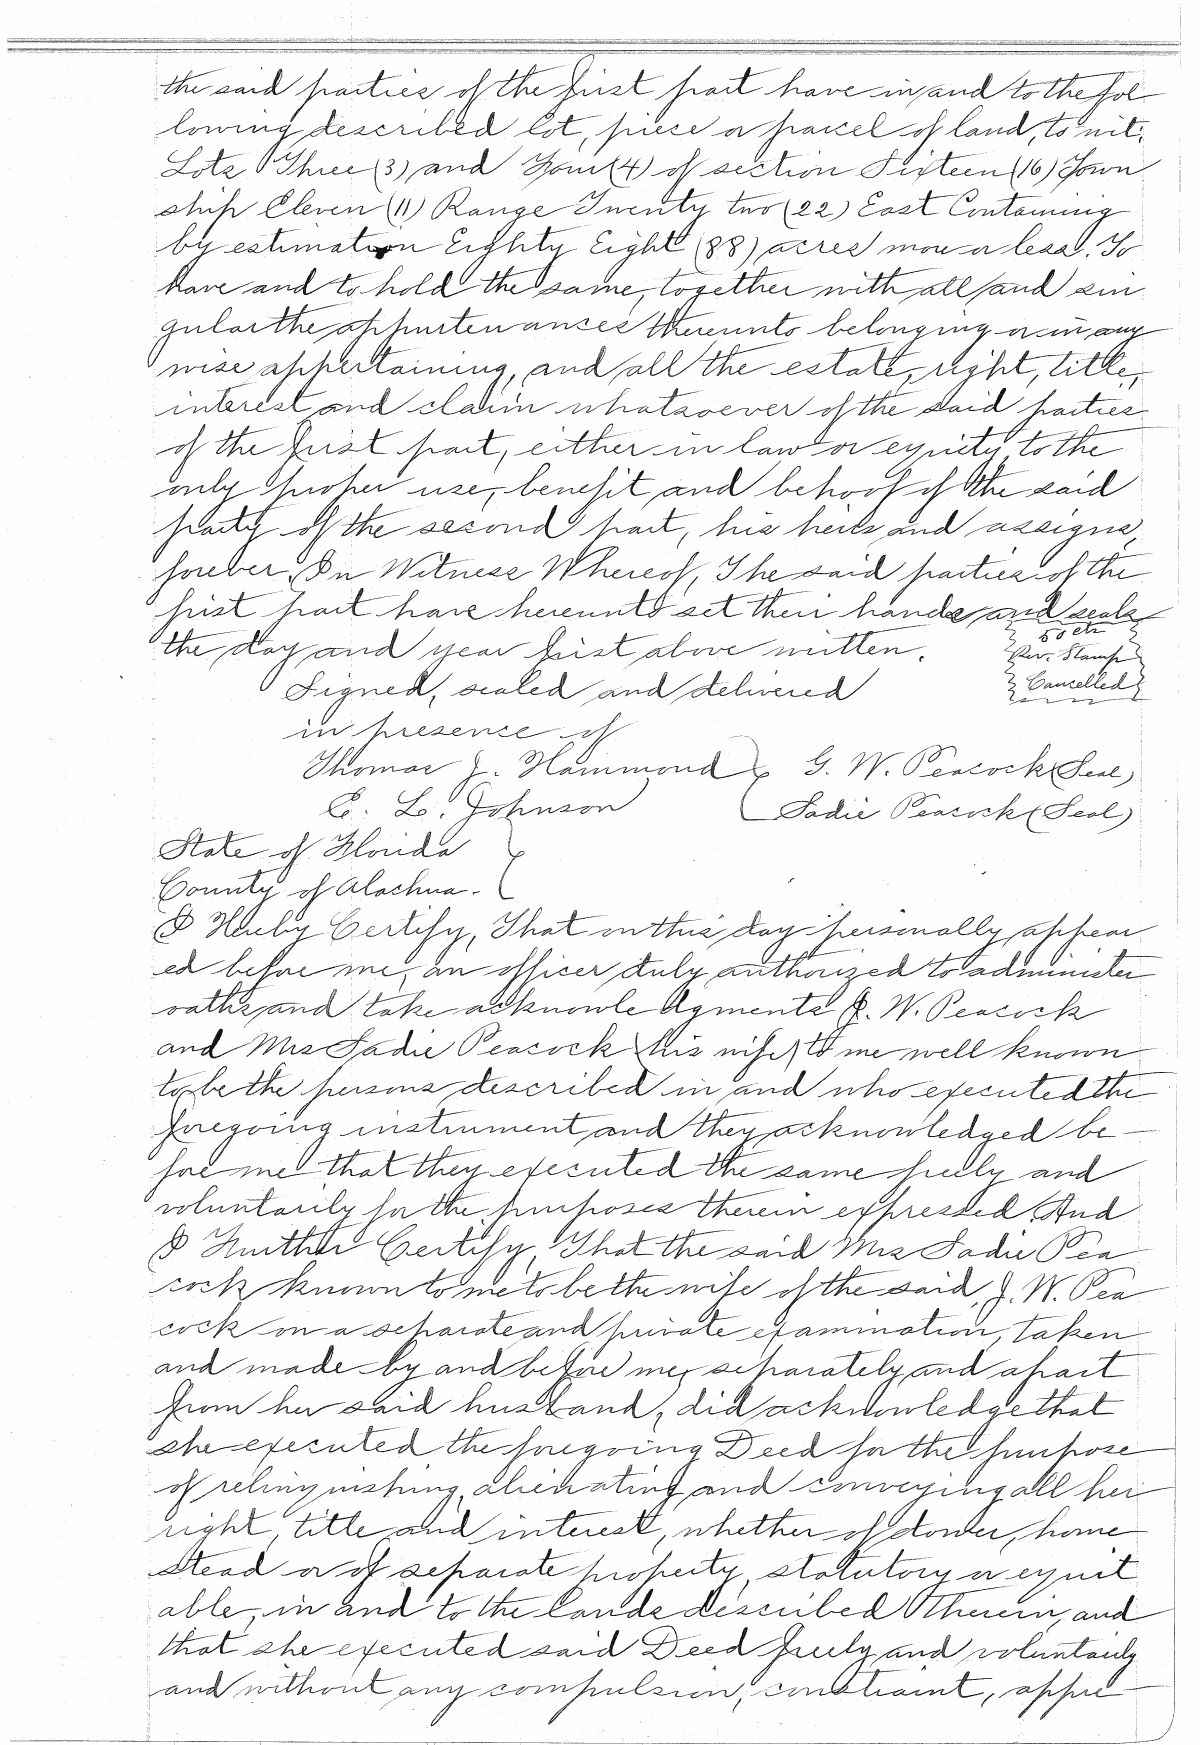 the said parties of the first part have in and to the fol
lowing described lot, piece or parcel of land, to wit:
Lots Three (3) and Four (4) of section Sixteen (16) Town
ship Eleven (11) Range Twenty two (22) East Containing
by estimation Eighty Eight (88) acres more or less. To
have and to hold the same, together with all and sin
gular the appurtenances thereunto belonging or in any
wise appertaining, and all the estate, right, title,
interest and claim whatsoever of the said parties
of the first part, either in law or equity, to the
only proper use, benefit and behoof of the said
party of the second part, his heirs and assigns,
forever. In Witness Whereof, The said parties of the
first part have hereunto set their hands and seals
the day and year first above written.
50 cts
Rev. Stamp
Cancelled
Signed, sealed and delivered
in presence of
Thomas J. Hammond G. W. Peacock (Seal)
C. L. Johnson Sadie Peacock (Seal)
State of Florida
County of Alachua.
I Hereby Certify, That on this day personally appear
ed before me, an officer duly authorized to administer
oaths and take acknowledgments J. W. Peacock
and Mrs Sadie Peacock (his wife) to me well known
to be the persons described in and who executed the
foregoing instrument and they acknowledged be
fore me that they executed the same freely and
voluntarily for the purposes therein expressed. And
I Further Certify, That the said Mrs Sadie Pea
cock known to me to be the wife of the said J. W. Pea
cock on a separate and private examination, taken
and made by and before me, separately and apart
from her said husband, did acknowledge that
she executed the foregoing Deed for the purpose
of relinquishing, alienating and conveying all her
right, title and interest, whether of dower, home
stead or of separate property, statutory or equit
able, in and to the lands described therein, and
that she executed said Deed freely and voluntarily
and without any compulsion, constraint, appre